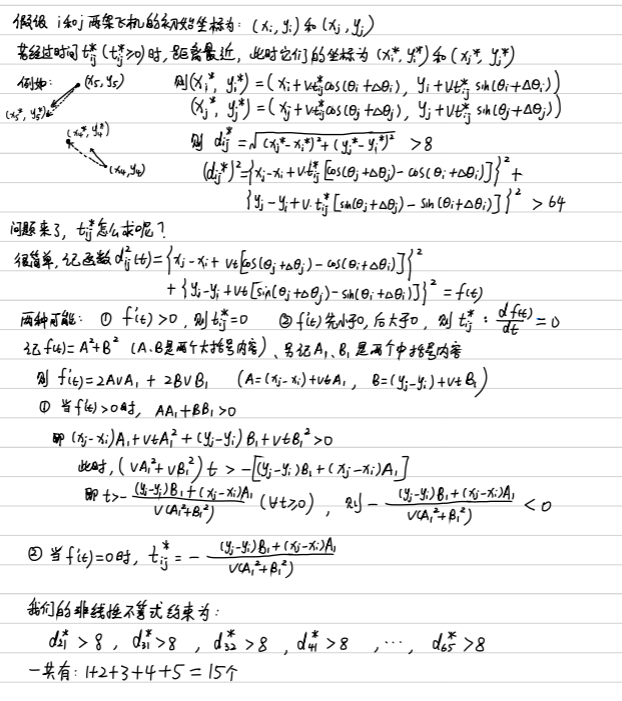 假设 i 和 j 两架飞机的初始坐标为：(xi, yi) 和 (xj, yj)
若经过时间 tij* (tij*≥0) 时，距离最近，此时它们的坐标为 (xi*, yi*) 和 (xj*, yj*)
例如：
(x5, y5)
(x5*, y5*)
(x4*, y4*)
(x4, y4)
则(xi*, yi*) = (xi+vtij*cos(θi+Δθi), yi+vtij* sin(θi+Δθi))
(xj*, yj*) = (xj+vtij*cos(θj+Δθj), yj+vtij* sin(θj+Δθj))
则 dij* = √((xj*-xi*)²+(yj*-yi*)²) >8
(dij*)²={xj-xi+v·tij*[cos(θj+Δθj)-cos(θi+Δθi)]}²+
{yj-yi+v·tij*[sin(θj+Δθj)-sin(θi+Δθi)]}² >64
问题来了，tij*怎么求呢？
很简单，记函数dij²(t)={xj-xi+vt[cos(θj+Δθj)-cos(θi+Δθi)]}²
+{yj-yi+vt[sin(θj+Δθj)-sin(θi+Δθi)]}² = f(t)
两种可能：① f'(t)>0，则tij*=0 ② f'(t)先小于0，后大于0，则 tij*：df(t)/dt=0
记 f(t)=A²+B² (A、B是两个大括号内容)、另记A1、B1是两个中括号内容
则 f'(t)=2AvA1 + 2BvB1 (A=(xj-xi)+vtA1, B=(yj-yi)+vtB1)
① 当f'(t)>0时，AA1+BB1>0
即 (xj-xi)A1+vtA1²+(yj-yi)B1+vtB1²>0
此时，(vA1²+vB1²)t > -[(yj-yi)B1+(xj-xi)A1]
即 t>-((yj-yi)B1+(xj-xi)A1)/(v(A1²+B1²)) (∀t≥0)，则 -((yj-yi)B1+(xj-xi)A1)/(v(A1²+B1²)) <0
② 当f'(t)=0时，tij*=-((yj-yi)B1+(xj-xi)A1)/(v(A1²+B1²))
我们的非线性不等式约束为：
d21*>8，d31*>8，d32*>8，d41*>8，…，d65*>8
一共有：1+2+3+4+5=15个